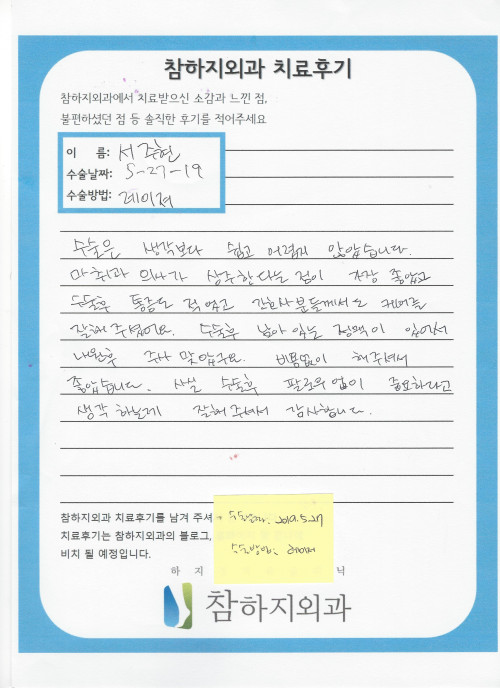 참하지외과 치료후기
참하지외과에서 치료받으신 소감과 느낀 점,
불편하셨던 점 등 솔직한 후기를 적어주세요
이 름: 서주현
수술날짜: 5-27-19
수술방법: 레이저
수술은 생각보다 쉽고 어렵지 않았습니다.
마취과 의사가 상주한다는 점이 가장 좋았고
수술후 통증도 적었고 간호사분들께서도 케어를
잘해주셨어요. 수술후 남아있는 정맥이 있어서
내원후 주사 맞았구요. 비용없이 해주셔서
좋았습니다. 사실 수술후 팔로우업이 중요하다고
생각하는데 잘해주셔서 감사합니다.
참하지외과 치료후기를 남겨 주셔
치료후기는 참하지외과의 블로그,
비치 될 예정입니다.
수술날짜: 2019.5.27
수술방법: 레이저
하 지 닉
참하지외과